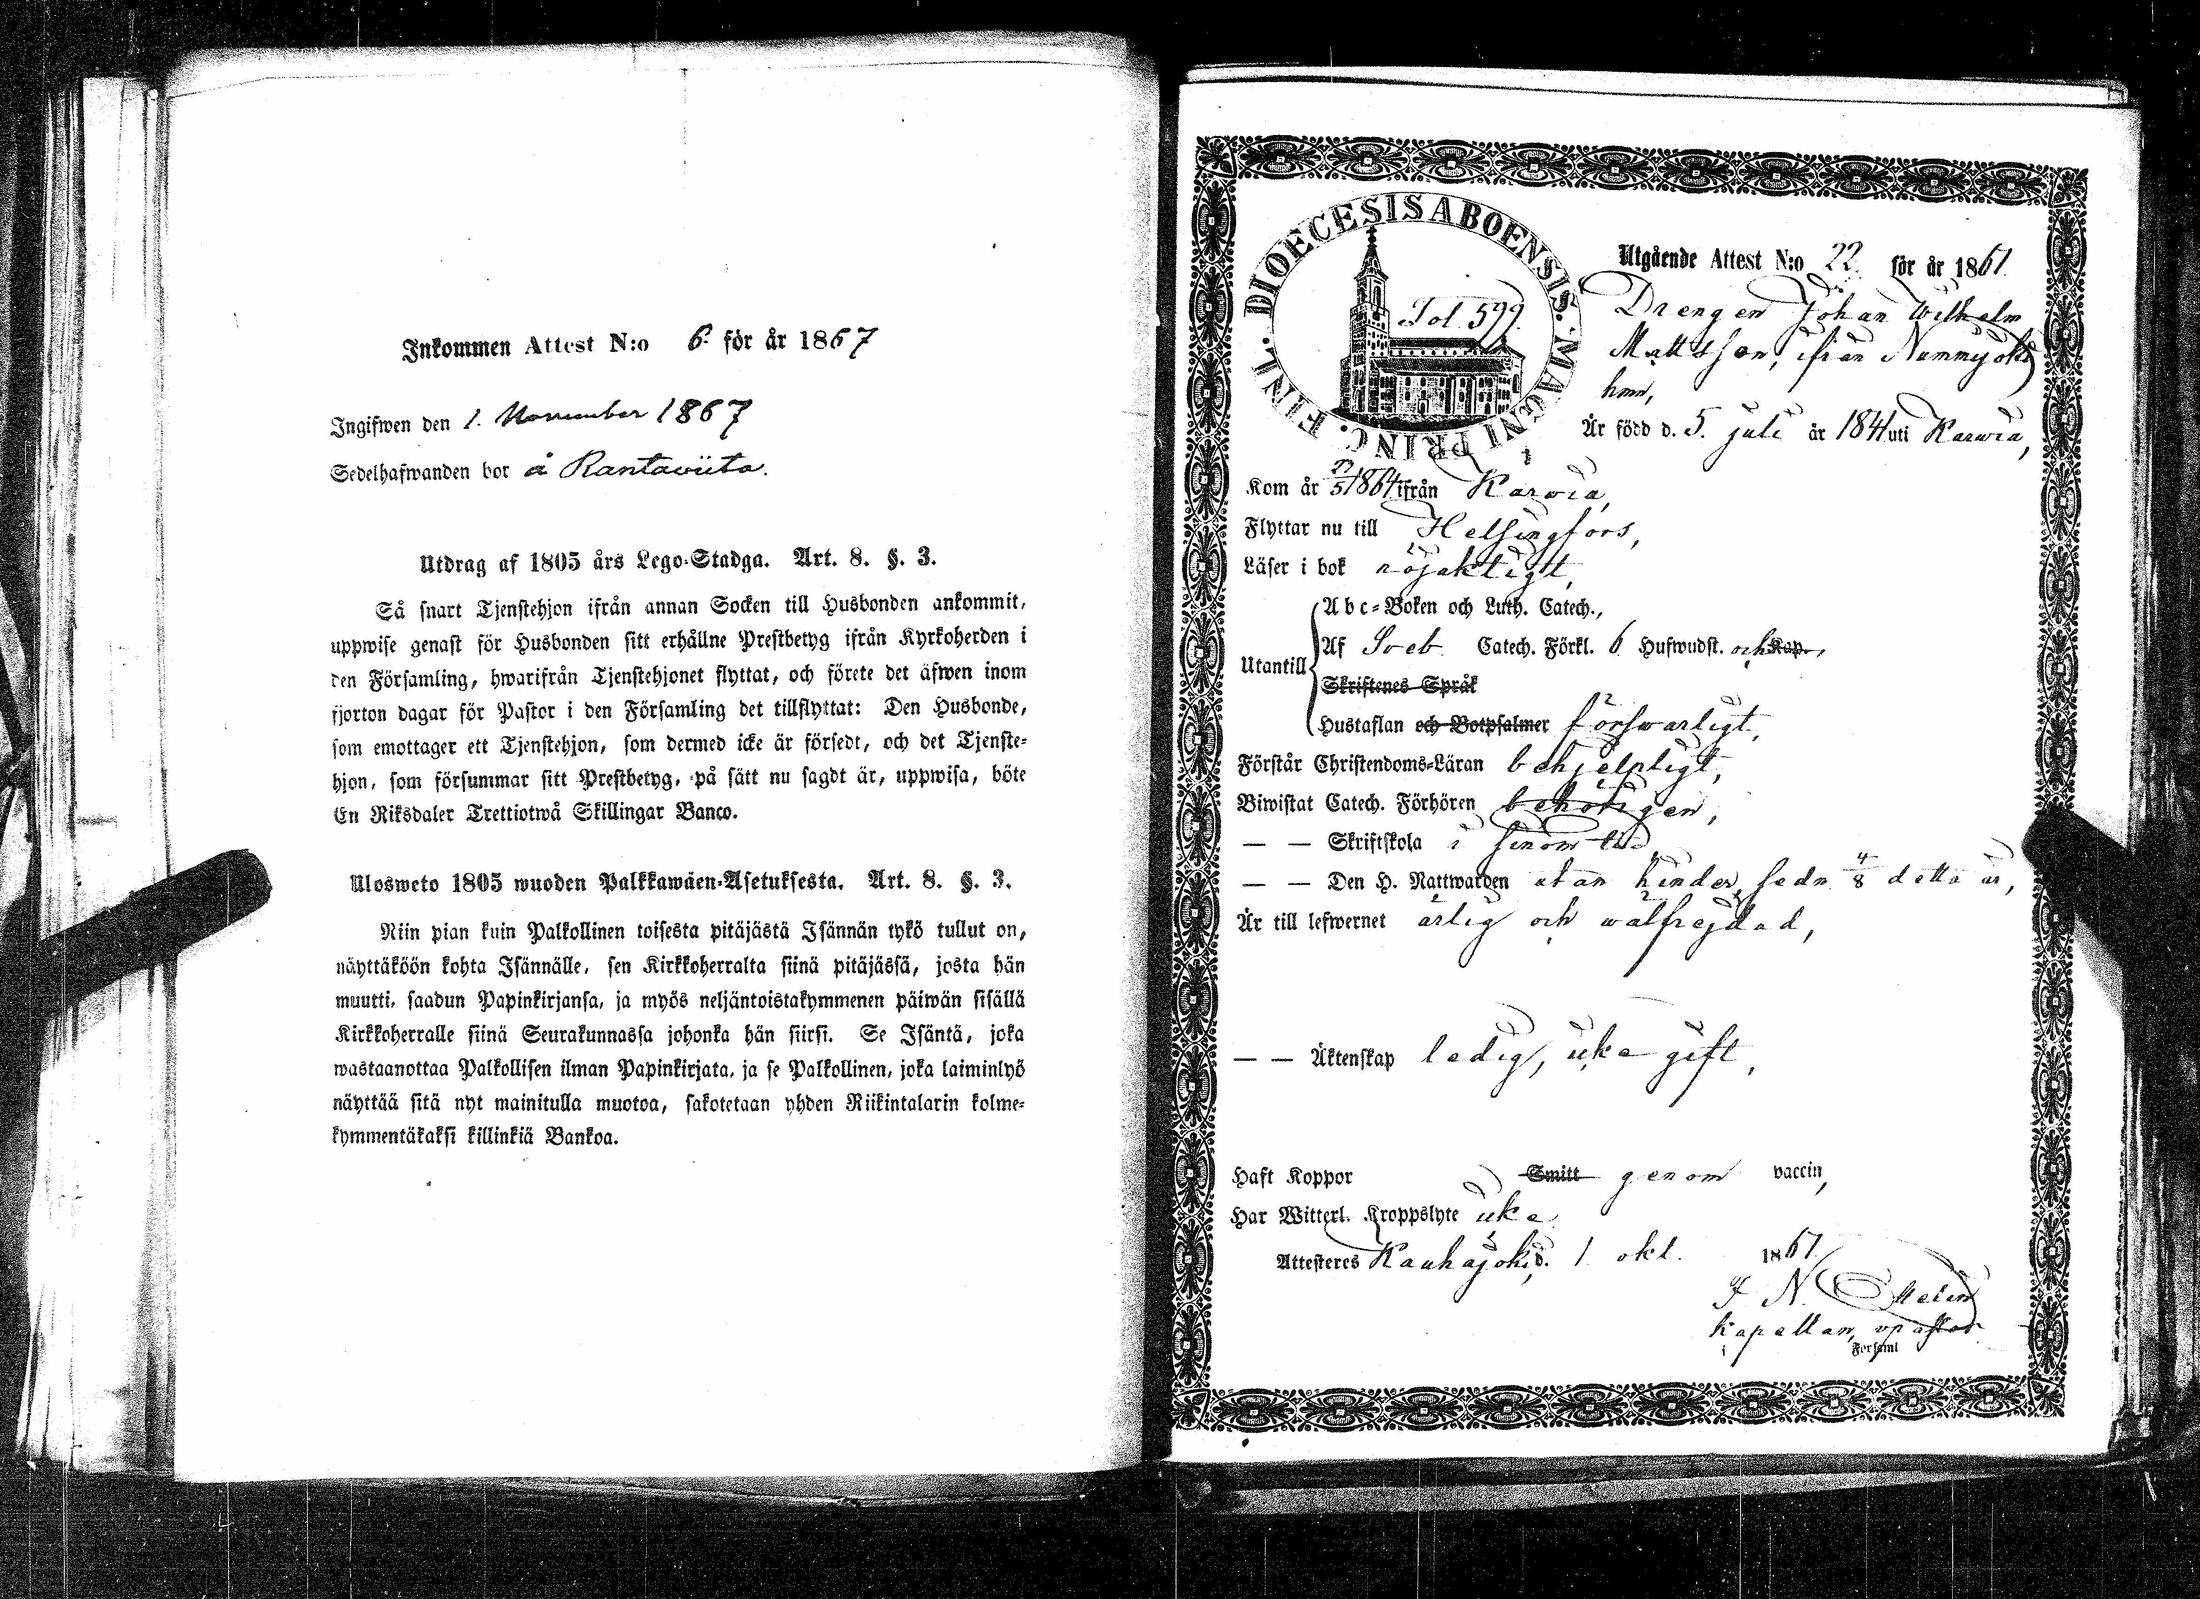 Inkommen Attest N:o 6. för år 1867
Ingifwen den 1. November 1867
Sedelhafwanden bor å Rantaviita.
Utdrag af 1805 års Lego-Stadga. Art. 8. §. 3.
Så snart Tjenstehjon ifrån annan Socken till Husbonden ankommit,
uppwise genast för Husbonden sitt erhållne Prestbetyg ifrån Kyrkoherden i
den Församling, hwarifrån Tjenstehjonet flyttat, och förete det äfwen inom
fjorton dagar för Pastor i den Församling det tillflyttat: Den Husbonde,
som emottager ett Tjenstehjon, som dermed icke är försedt, och det Tjenste-
hjon, som försummar sitt Prestbetyg, på sätt nu sagdt är, uppwisa, böte
En Riksdaler Trettiotwå Skillingar Banco.
Ulosweto 1805 wuoden Palkkawäen-Asetuksesta. Art. 8. §. 3.
Niin pian kuin Palkollinen toisesta pitäjästä Isännän tykö tullut on,
näyttäköön kohta Isännälle, sen Kirkkoherralta siinä pitäjässä, josta hän
muutti, saadun Papinkirjansa, ja myös neljäntoistakymmenen päiwän sisällä
Kirkkoherralle siinä Seurakunnassa johonka hän siirsi. Se Isäntä, joka
wastaanottaa Palkollisen ilman Papinkirjata, ja se Palkollinen, joka laiminlyö
näyttää sitä nyt mainitulla muotoa, sakotetaan yhden Riikintalarin kolme-
kymmentäkaksi killinkiä Bankoa.
DIOECESIS ABOENSIS. MAGNI PRINC. FINL.
Fol. 599.
Utgående Attest N:o 22. för år 1867.
Drengen Johan Wilhelm
Mattsson, ifrån Nummijoki
hmn,
Är född d. 5. juli år 1841 uti Karvia,
Kom år 1864 ifrån Karvia,
Flyttar nu till Helsingfors,
Läser i bok nöjaktigt,
Utantill
Abc-Boken och Luth. Catech.,
Af Sveb. Catech. Förkl. 6 Hufwudst. och Kap.,
Skriftenes Språk
Hustaflan och Botpsalmer försvarligt,
Förstår Christendoms-Läran behjelpligt,
Biwistat Catech. Förhören behörigen,
— — Skriftskola i sinom tid
— — Den H. Nattwarden utan hinder, sedn 4/8 detta år,
Är till lefwernet ärlig och välfrejdad,
— — Äktenskap ledig, icke gift,
Haft Koppor Smitt genom vaccin,
Har Witterl. Kroppslyte icke
Attesteres Kauhajoki d. 1 okt. 1867
kapellan, v pastor
i Församl